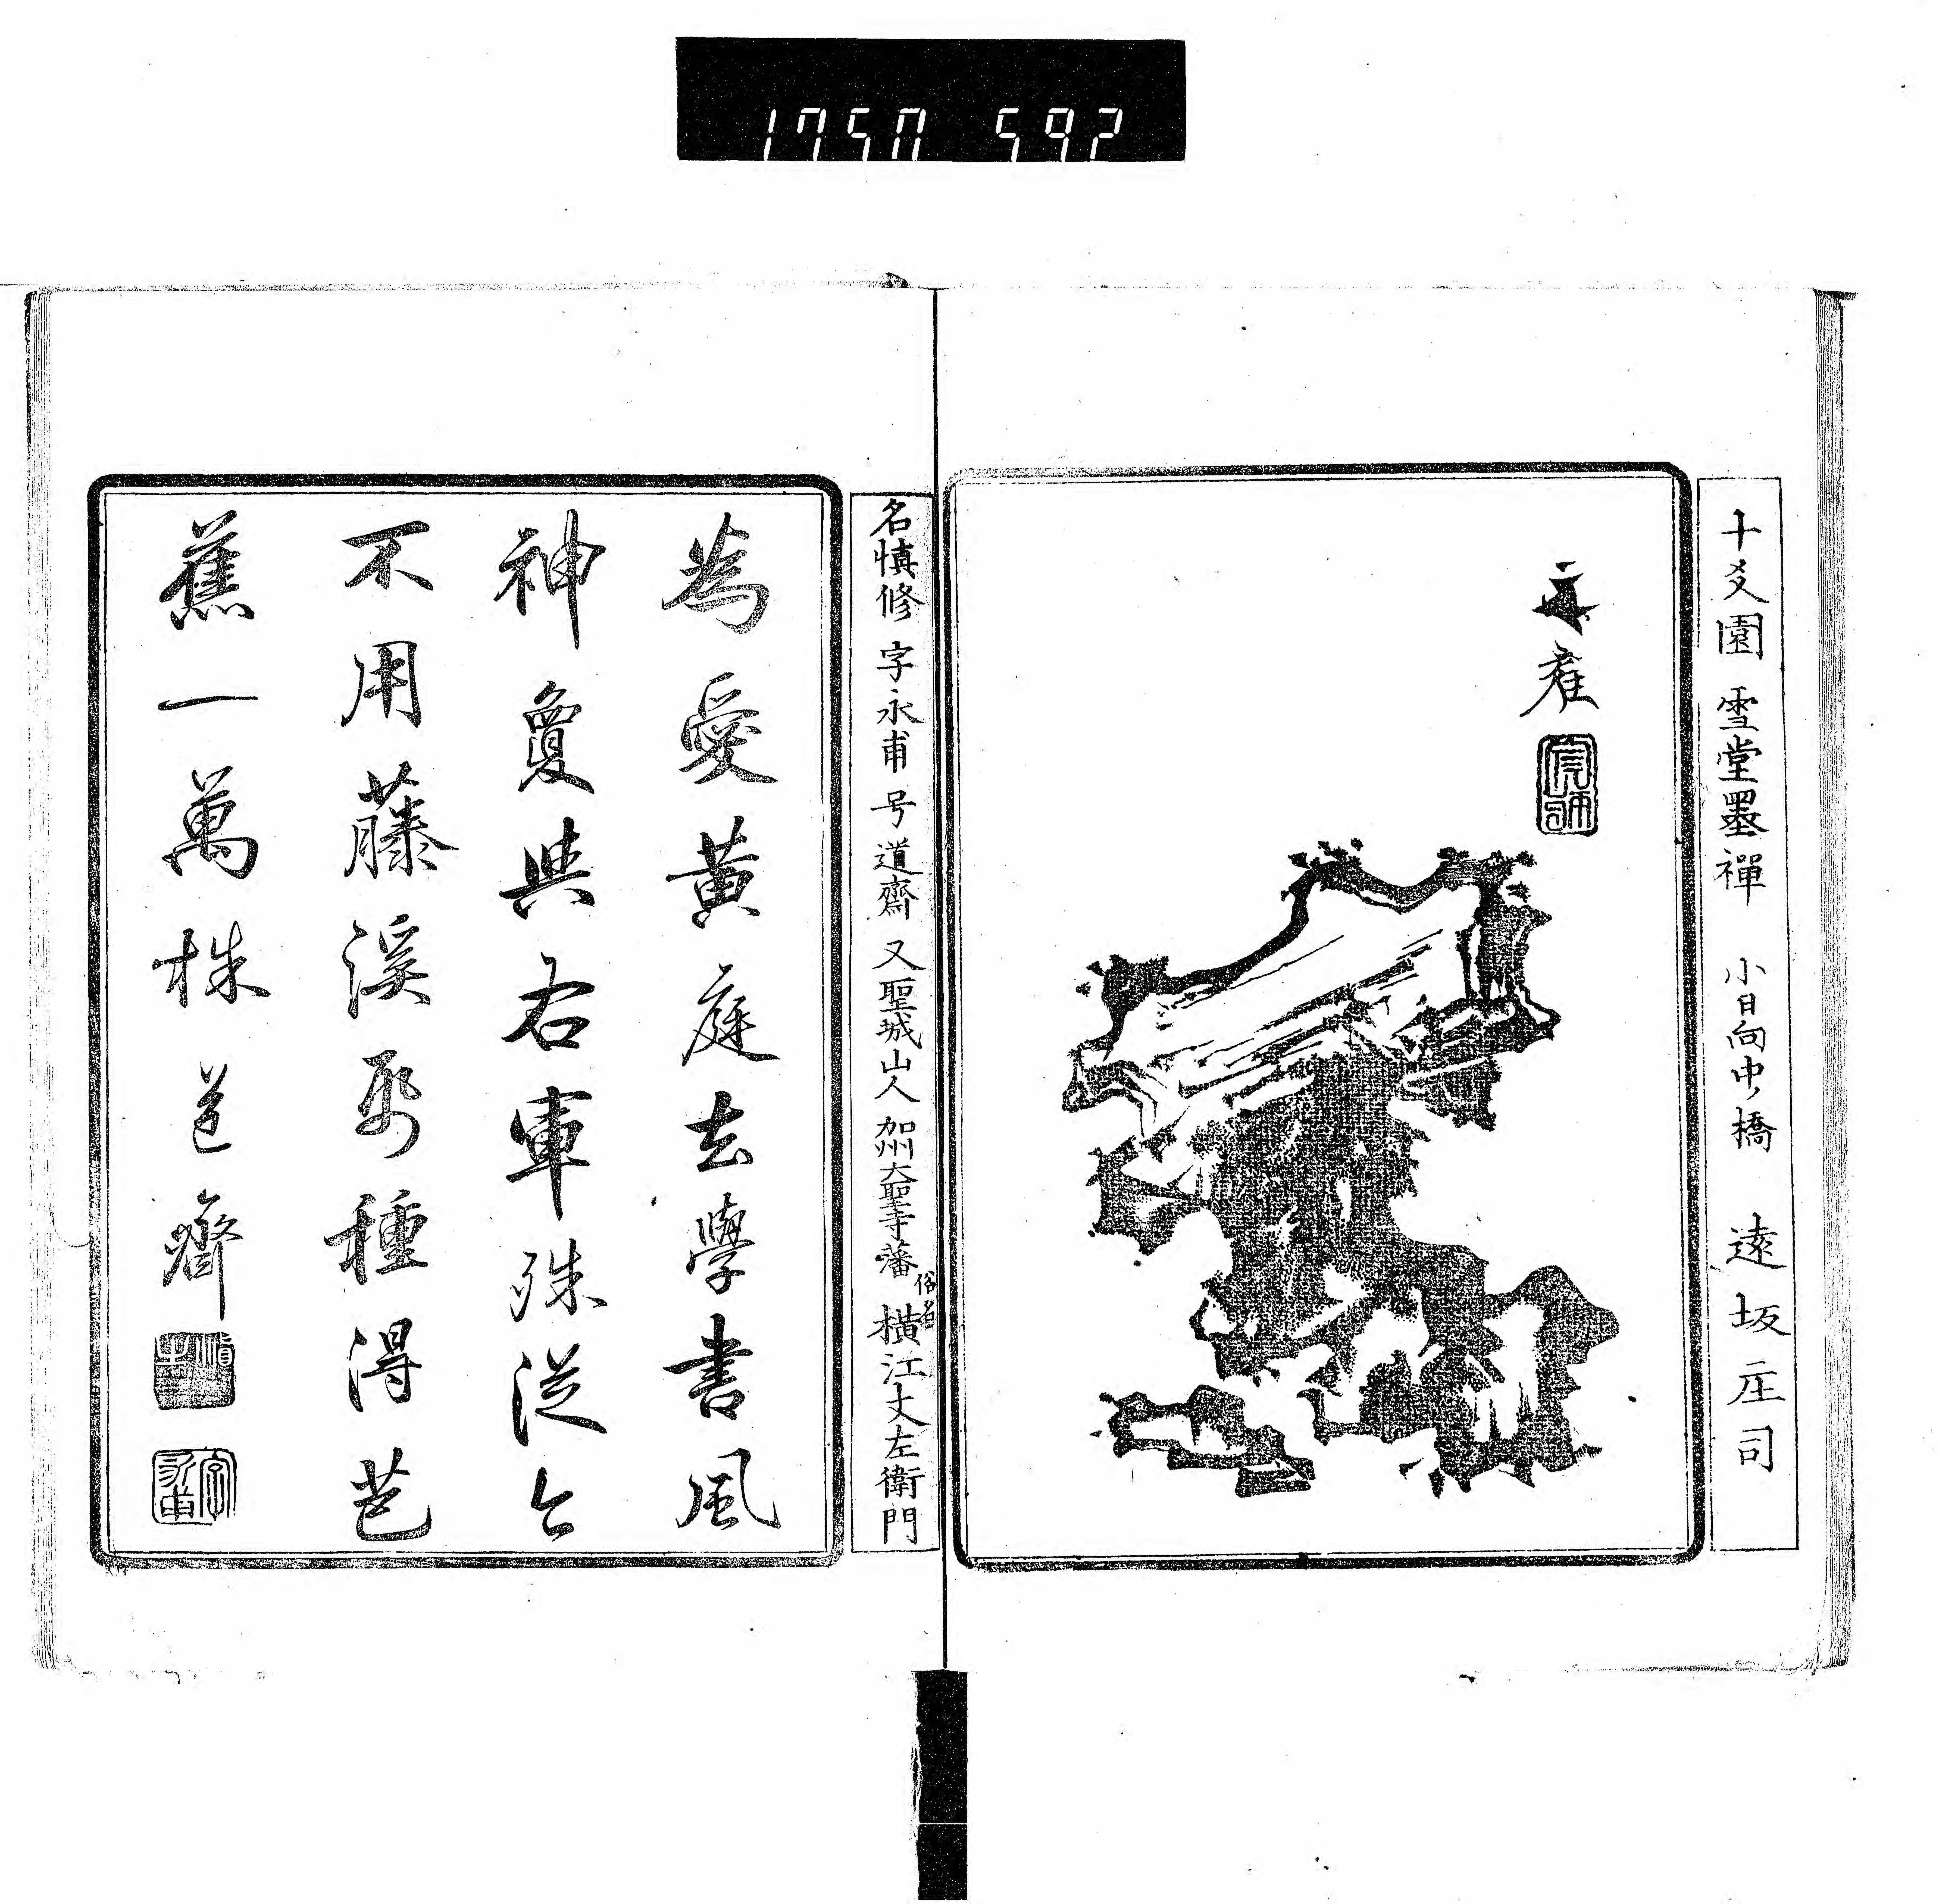 十爻園 雪堂墨禪 小日向中ノ橋 遠坂庄司
文雍
名慎修 字永甫 号道齋 又聖城山人 加州大聖寺藩 俗名 横江丈左衛門
為愛黄庭去學書風
神夐與右軍殊從今
不用藤溪帋種得芭
蕉一萬株 道齋
字永甫